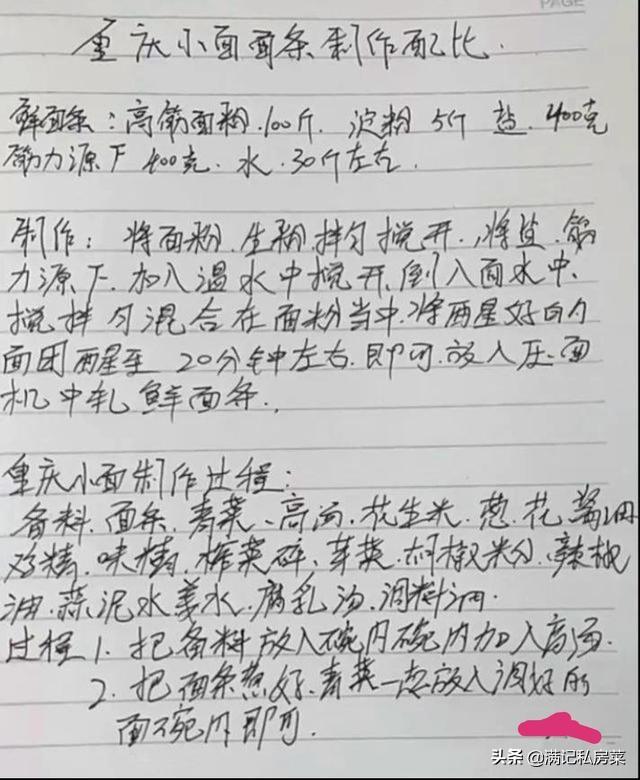 PAGE
重庆小面面条制作配比.
鲜面条：高筋面粉.100斤. 淀粉 5斤 盐.400克
筋力源下 400克. 水.30斤左右.
制作：将面粉.生粉.拌匀搅开.将盐.筋
力源下.加入温水中搅开.倒入面水中.
搅拌匀混合在面粉当中.将醒好的
面团醒至 20分钟左右.即可.放入压面
机中轧鲜面条.
重庆小面制作过程：
备料.面条.青菜、高汤.花生米.葱.花酱油
鸡精.味精.榨菜碎.芽菜.胡椒粉.辣椒
油.蒜泥水姜水.腐乳汤.调料油.
过程 1.把备料放入碗内碗内加入高汤.
2.把面条煮好.青菜一起放入调好的
面碗内即可.
头条 @满记私房菜